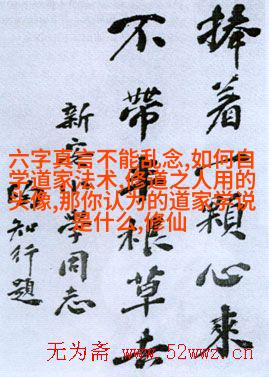 捧着一顆心來
不帶半根草去
新安小學同志
陶知行題
六字真言不能乱念,如何自
学道家法术,修道之人用的
头像,那你认为的道家学说
是什么,修仙
无为斋 .www.52wwz.cn